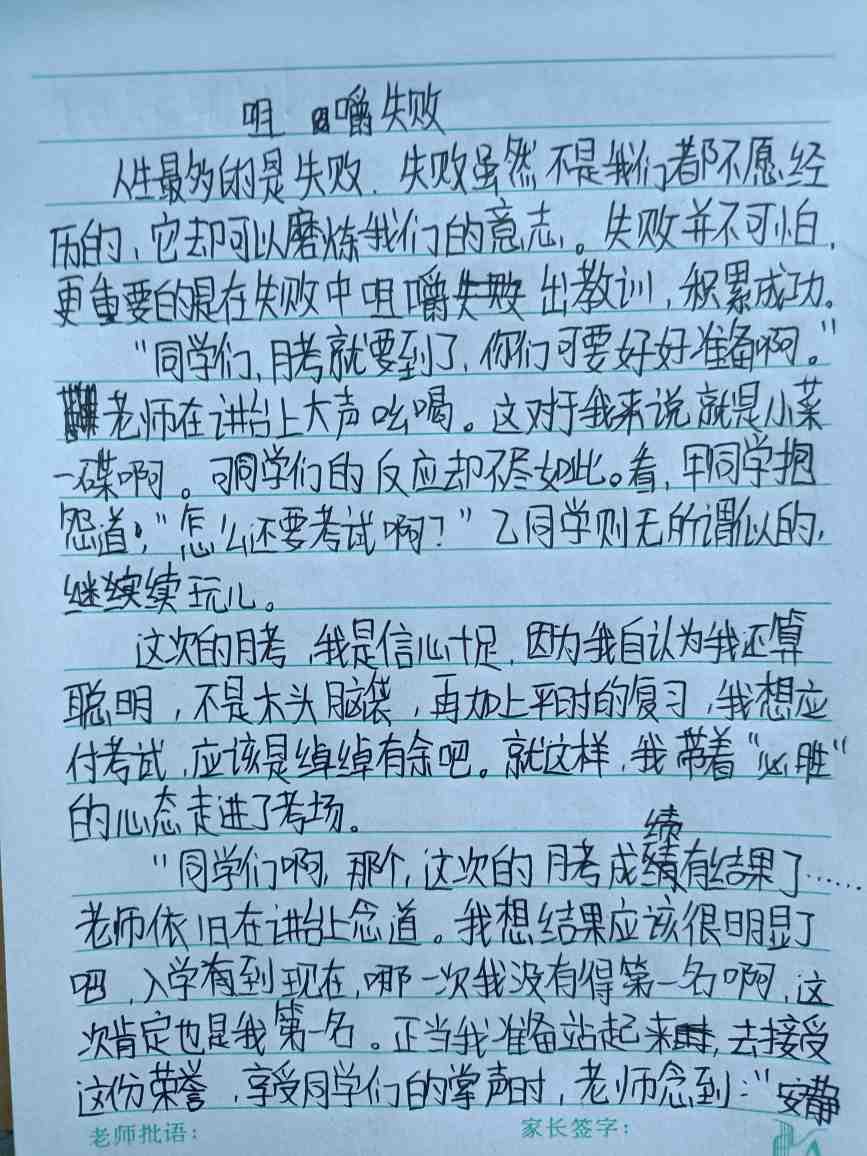 咀嚼失败
人生最多的是失败．失败虽然不是我们都不愿经
历的，它却可以磨炼我们的意志。失败并不可怕，
更重要的是在失败中咀嚼出教训，积累成功。
“同学们，月考就要到了，你们可要好好准备啊。”
老师在讲台上大声吆喝。这对于我来说就是小菜
一碟啊。可同学们的反应却不尽如此。看，甲同学抱
怨道：“怎么还要考试啊？”乙同学则无所谓似的，
继续续玩儿。
这次的月考，我是信心十足，因为我自认为我还算
聪明，不是木头脑袋，再加上平时的复习，我想应
付考试，应该是绰绰有余吧。就这样，我带着“必胜”
的心态走进了考场。
“同学们啊，那个，这次的月考成绩有结果了……
老师依旧在讲台上念道。我想结果应该很明显了
吧，入学有到现在，哪一次我没有得第一名啊，这
次肯定也是我第一名。正当我准备站起来，去接受
这份荣誉，享受同学们的掌声时，老师念到：“安静
老师批语：
家长签字：